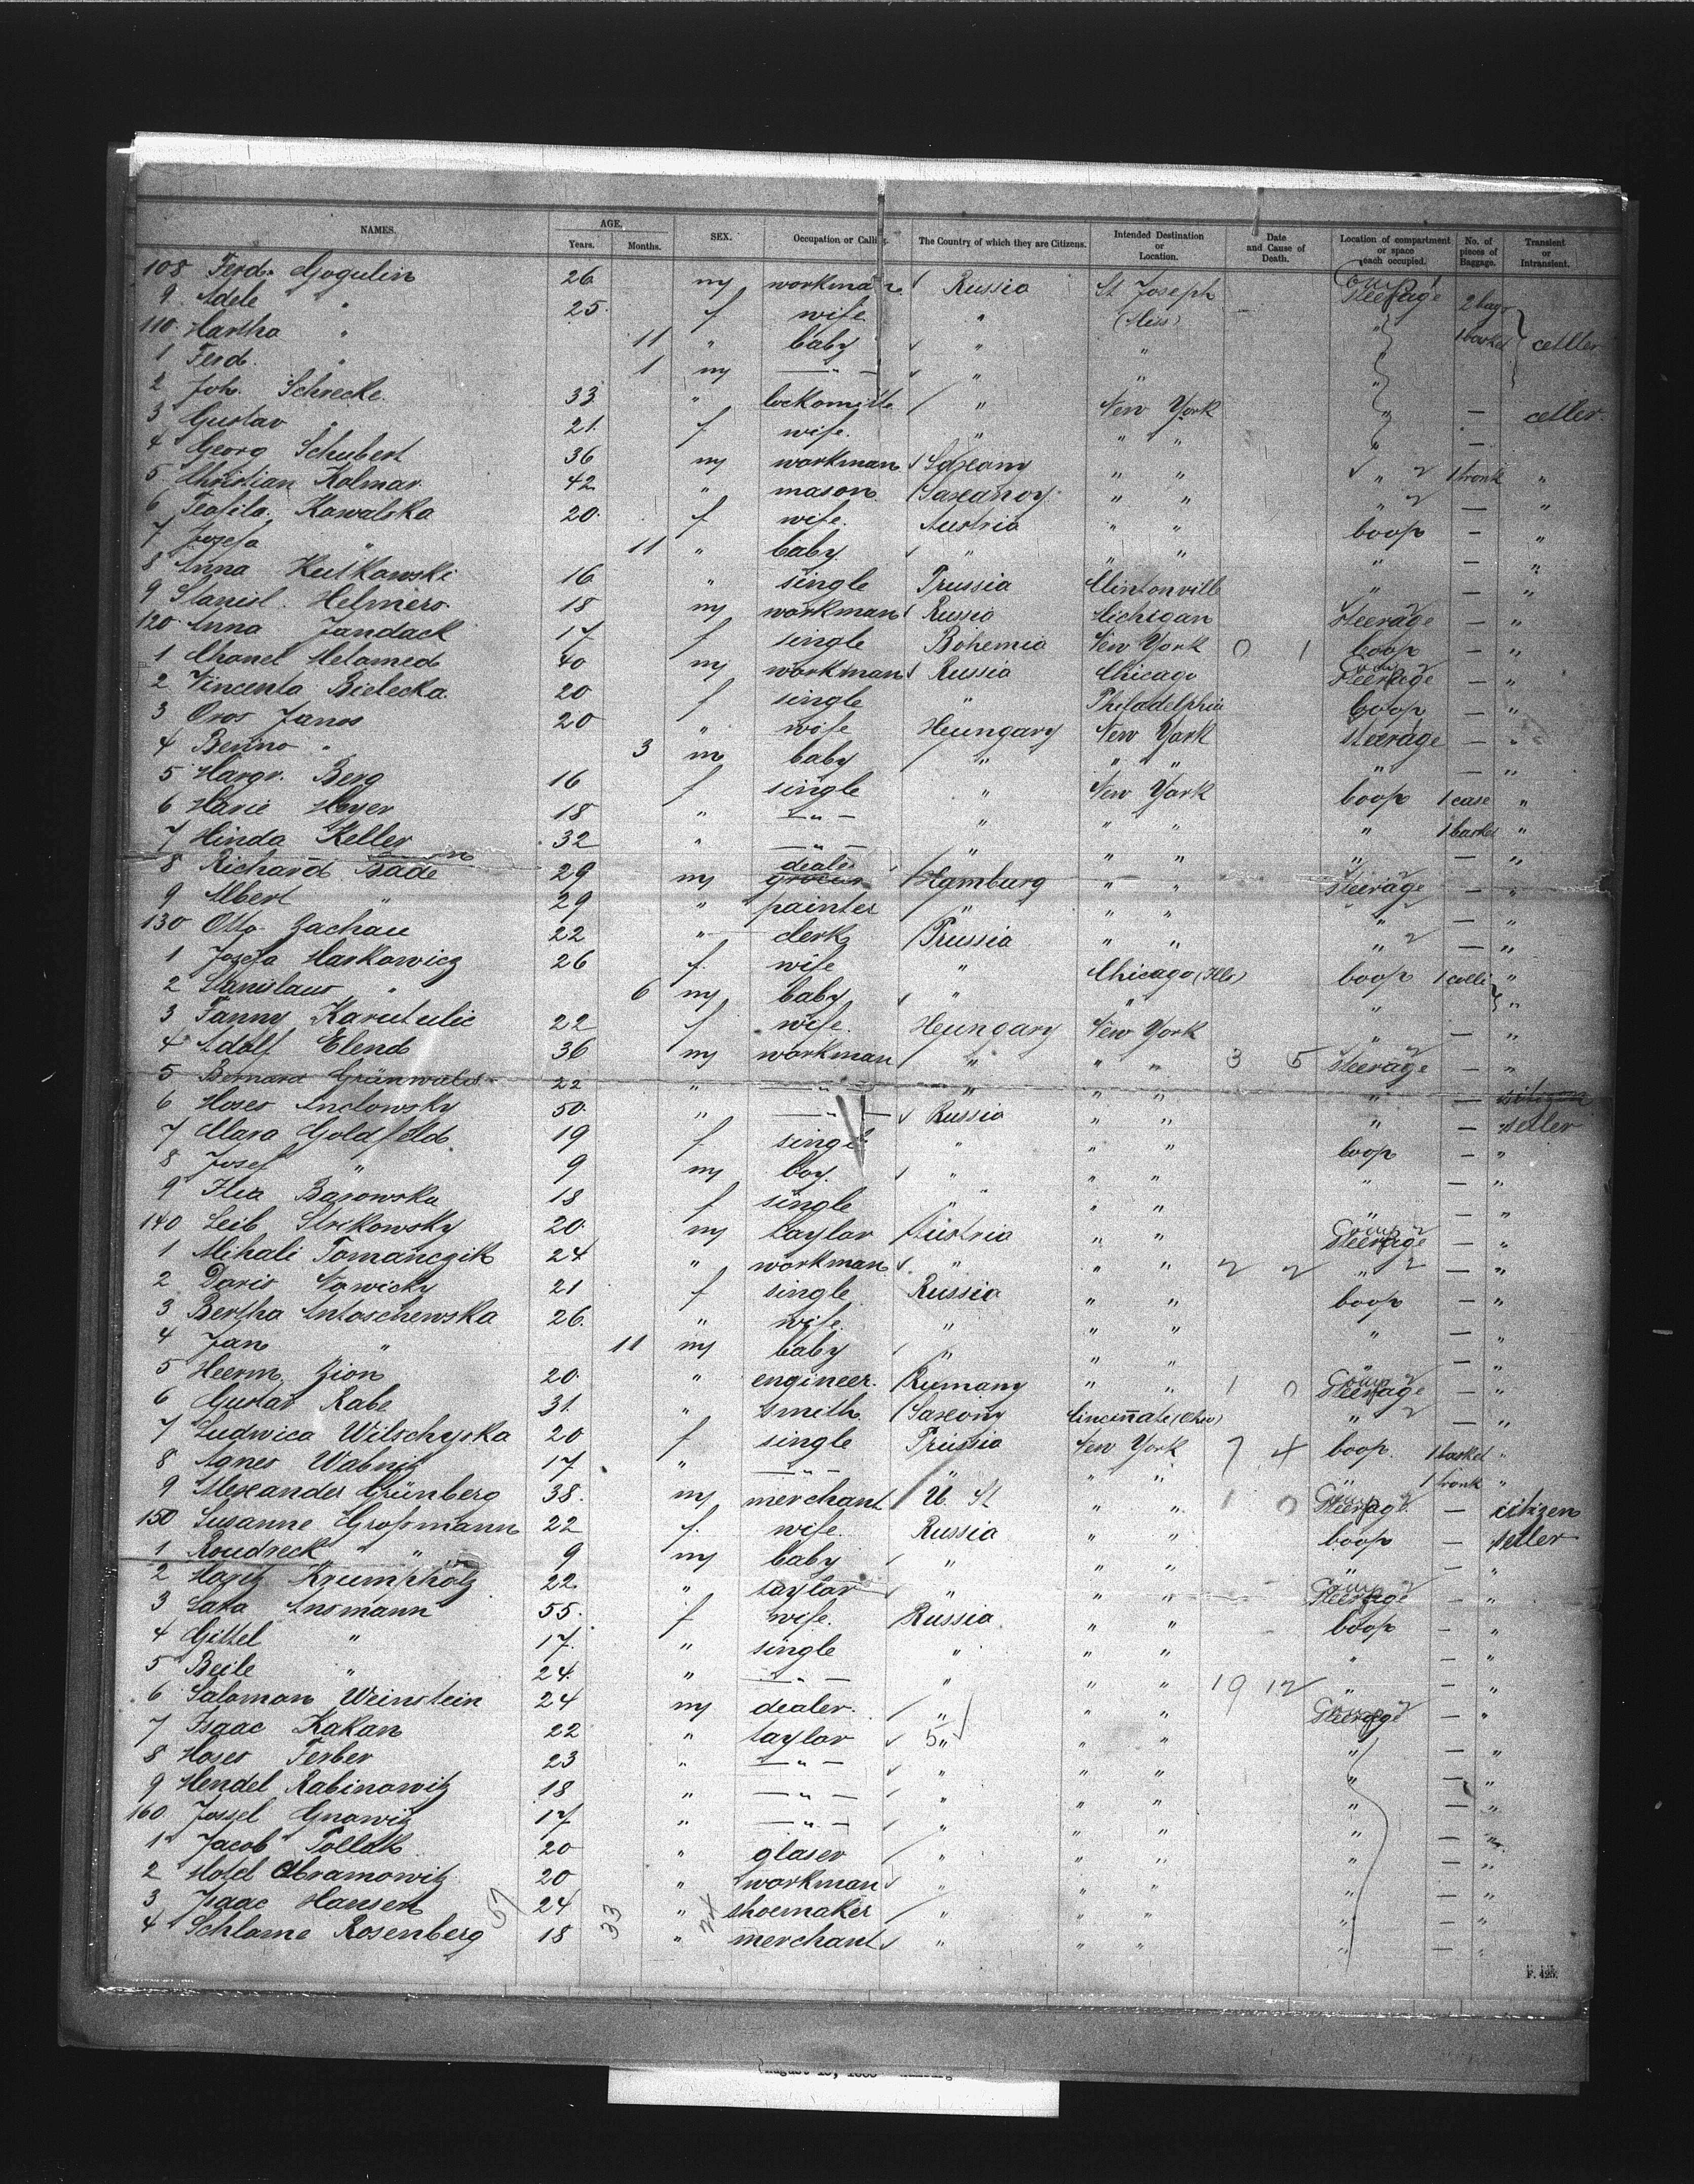 NAMES. AGE. Years. Months. SEX. Occupation or Calling. The Country of which they are Citizens. Intended Destination or Location. Date and Cause of Death. Location of compartment or space each occupied. No. of pieces of Baggage. Transient or Intransient.
108 Ferd. Gogulin 26 m workman Russia St Joseph Comp 1 Steerage 2 bags
9 Adele " 25 f wife " (Miss) "
110 Martha " 11 " baby " " " 1 basket cettler
1 Ferd. " 1 m — " — " " "
2 Joh. Schrecke 33 " locksmith " New York " — cettler
3 Gustav " 21 f wife " " " " —
4 Georg Schubert 36 m workman Saxony " " " 2 1 trunk "
5 Christian Kolmar 42 " mason Saxony " " " 2 — "
6 Teofila Kowalska 20 f wife Austria " " coop — "
7 Josefa " 11 " baby " " " " — "
8 Anna Kutkowski 16 " single Prussia Clintonville " — "
9 Stanisl. Helmers 18 m workman Russia Michigan Steerage 2 — "
120 Anna Jandack 17 f single Bohemia New York 0 1 coop — "
1 Chanel Melamed 40 m workman Russia Chicago Comp 2 Steerage — "
2 Vincenta Bielecka 20 f single " Philadelphia coop — "
3 Oros Janos 20 " wife Hungary New York steerage — "
4 Benno " 3 m baby " " " " — "
5 Margr. Berg 16 f single " New York coop 1 case "
6 Marie Meyer 18 " — " — " " " " 1 basket "
7 Minda Keller 32 " — " — " " " " — "
8 Richard Bade 29 m dealer grocer Hamburg " " Steerage 2 — "
9 Albert " 29 " painter " " " " — "
130 Otto Zachau 22 " clerk Prussia " " " 2 — "
1 Josefa Markowicz 26 f wife " Chicago (Ills) coop 1 colli "
2 Stanislaus " 6 m baby " " " "
3 Fanny Karutulic 22 f wife Hungary New York " — "
4 Adolf Elend 36 m workman " " " 3 5 Steerage 2 — "
5 Bernard Grünwald 22 " — " — " " " " — citizen
6 Moses Anclowsky 50 " — " — Russia " " " — setler
7 Clara Goldfeld 19 f single " " " coop — "
8 Josef " 9 m boy " " " " — "
9 Ilia Barowska 18 f single " " " " — "
140 Leib Strikowsky 20 m taylor Austria " " Comp 2 Steerage — "
1 Mihali Tomanczik 24 " workman " " " 2 2 " 2 — "
2 Doris Nowicky 21 f single Russia " " coop — "
3 Bertha Antoschewska 26 " wife " " " " — "
4 Jan " 11 m baby " " " " — "
5 Heerm. Zion 20 " engineer Rumany " " 1 0 Comp 2 Steerage — "
6 Gustav Rabe 31 " smith Saxony Cincinnati (Ohio) " 2 — "
7 Ludwica Wilschyska 20 f single Prussia New York 7 4 coop 1 basket "
8 Agnes Wabnitz 17 " — " — " " " " 1 trunk "
9 Alexander Grünberg 38 m merchant U. St " " 1 0 Comp 2 Steerage — citizen
150 Susanne Großmann 22 f wife Russia " " coop — setler
1 Roudreck " 9 m baby " " " " — "
2 Moritz Krumpholz 22 " taylor " " " Comp 2 Steerage — "
3 Sara Ansmann 55 f wife Russia " " coop — "
4 Gittel " 17 " single " " " " — "
5 Beile " 24 " — " — " " " 19 12 " — "
6 Salomon Weinstein 24 m dealer " " " Comp 2 Steerage — "
7 Isaac Kakan 22 " taylor 5 " " " " — "
8 Moses Ferber 23 " — " — " " " " — "
9 Mendel Rabinowitz 18 " — " — " " " " — "
160 Jossel Gnowitz 17 " — " — " " " " — "
1 Jacob Pollak 20 " glaser " " " " — "
2 Motel Abramowitz 20 " workman " " " " — "
3 Isaac Hansen 24 " shoemaker " " " " — "
4 Schlome Rosenberg 18 " merchant " " " " — "
57 33 24
F. 425.